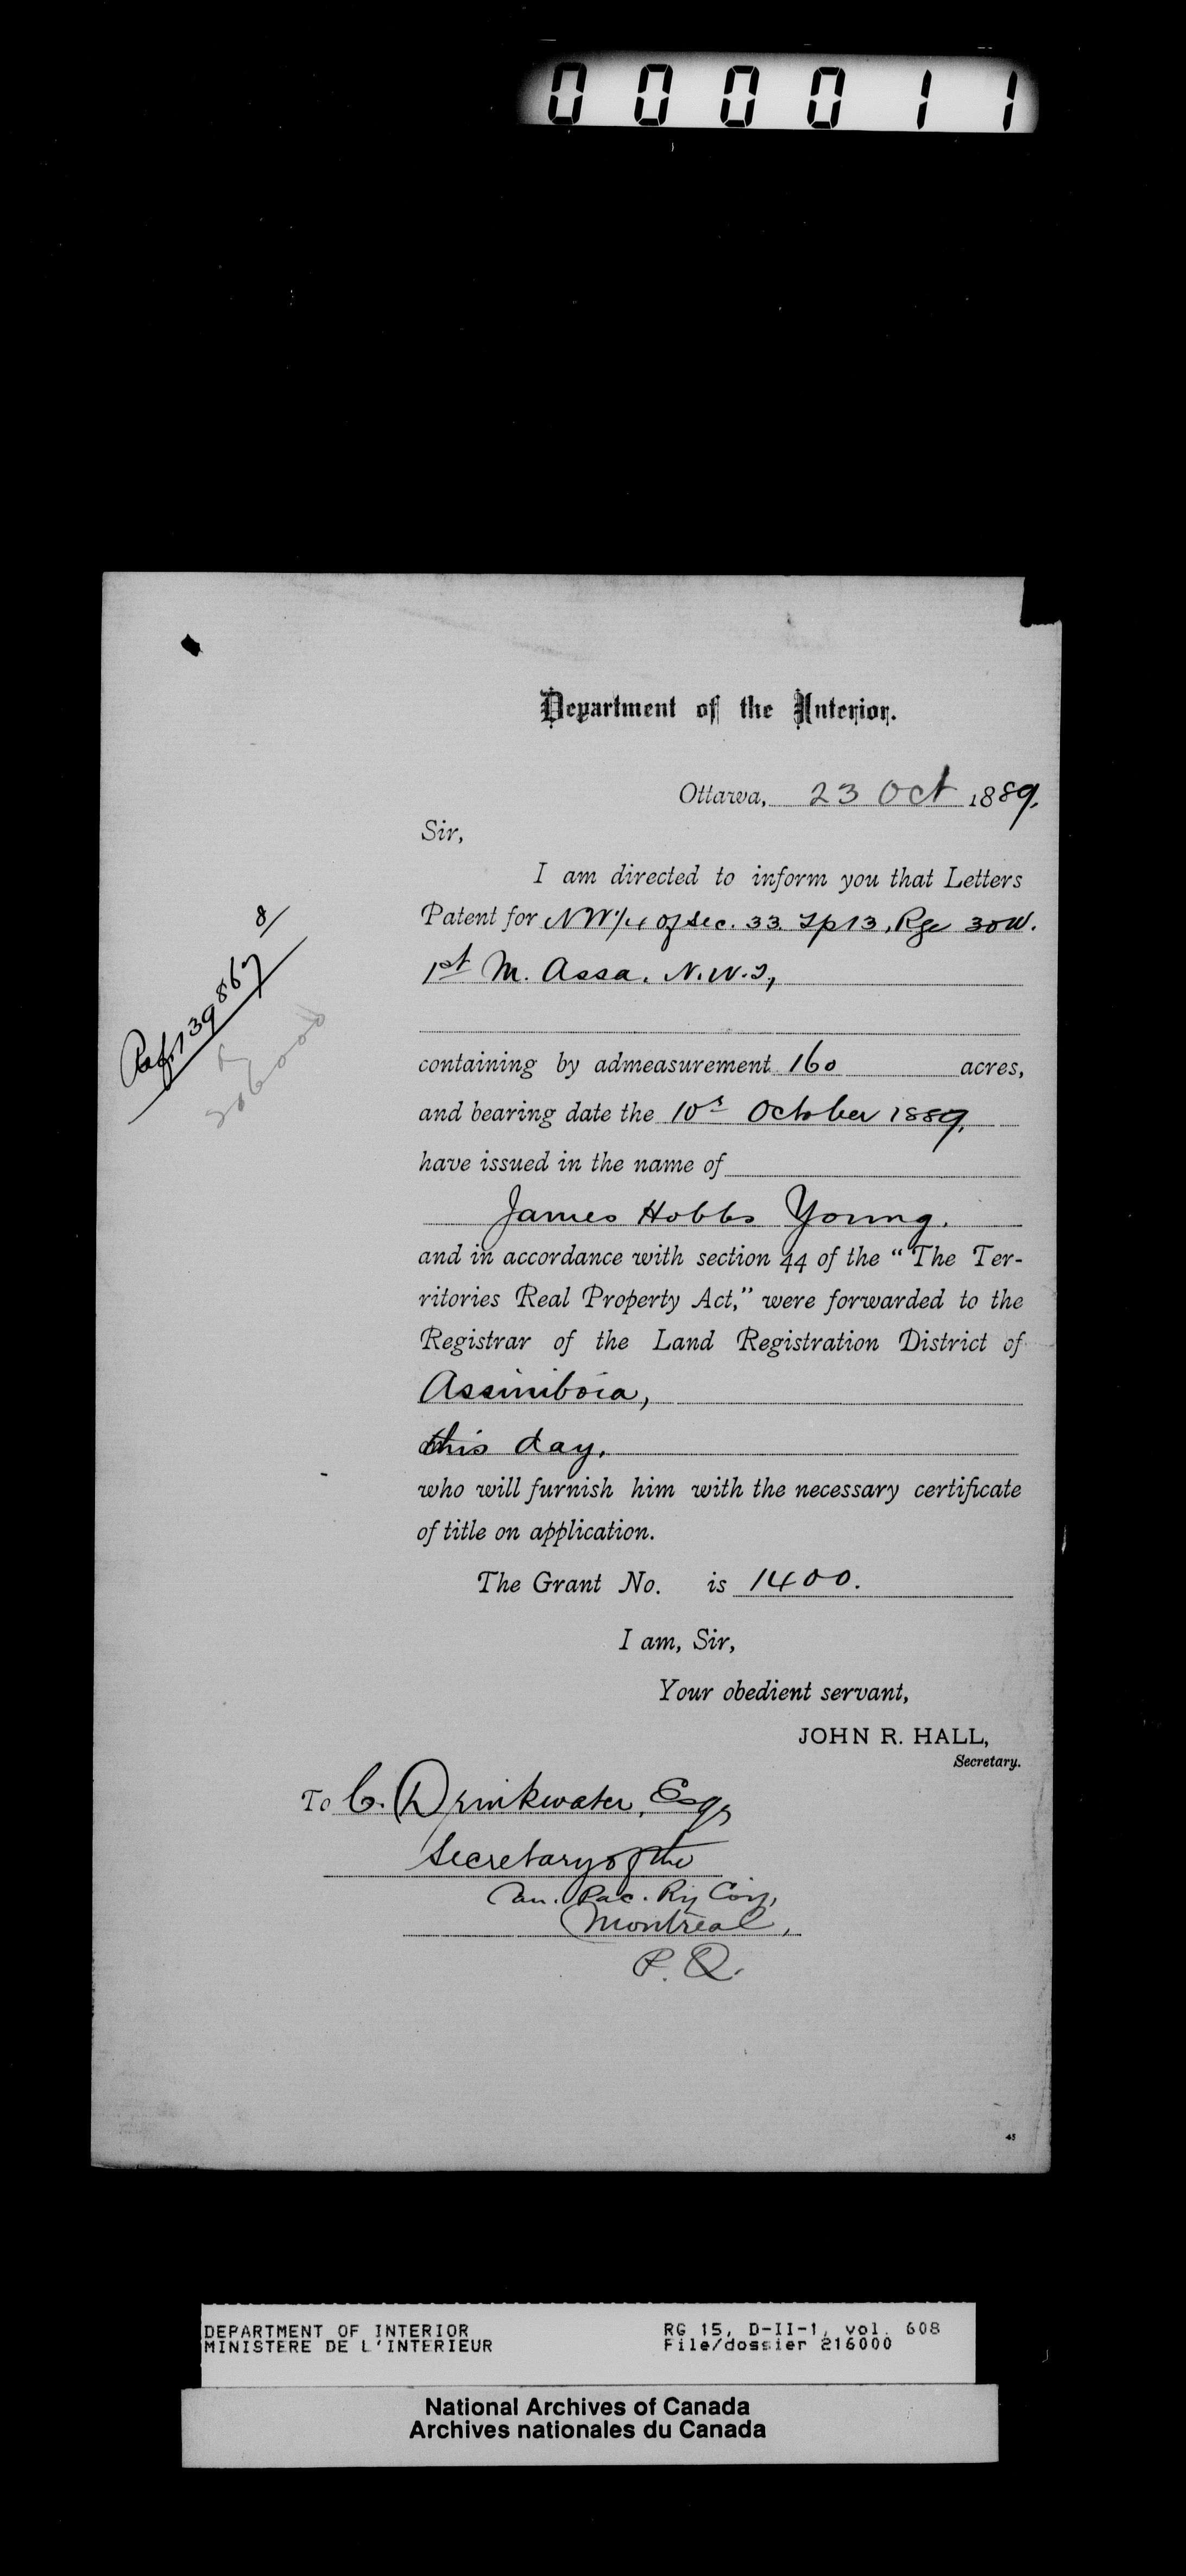 000011
Department of the Interior.
Ottawa, 23 Oct 1889.
Sir,
I am directed to inform you that Letters
Patent for NW 1/4 of Sec. 33. Tp 13, Rge 30 W.
1st M. Assa. N.W.T,
containing by admeasurement 160 acres,
and bearing date the 10th October 1889,
have issued in the name of
James Hobbs Young.
and in accordance with section 44 of the "The Ter-
ritories Real Property Act," were forwarded to the
Registrar of the Land Registration District of
Assiniboia,
this day.
who will furnish him with the necessary certificate
of title on application.
The Grant No. is 1400.
I am, Sir,
Your obedient servant,
JOHN R. HALL,
Secretary.
To C. Drinkwater, Esq,
Secretary of the
Can. Pac. Ry Coy,
Montreal,
P.Q.
Ref. 139867
8/
45
DEPARTMENT OF INTERIOR
MINISTERE DE L'INTERIEUR
RG 15, D-II-1, vol. 608
File/dossier 216000
National Archives of Canada
Archives nationales du Canada